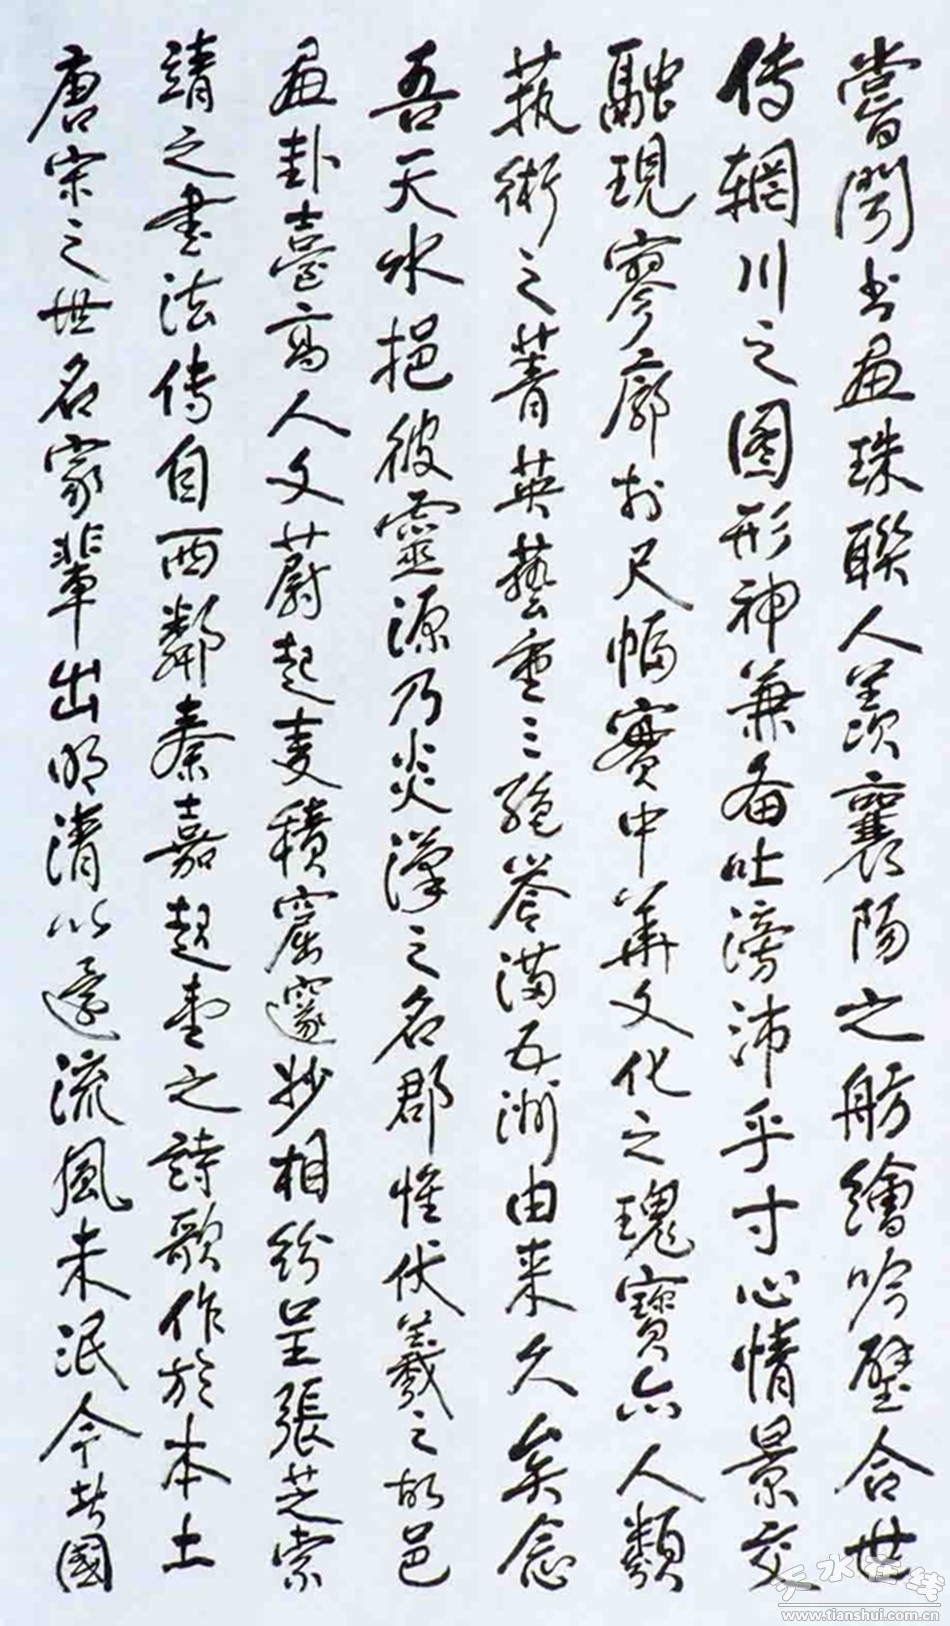 嘗聞書畫珠聯人羨襄陽之舫繪吟璧合世
傳輞川之圖形神兼备吐滂沛乎寸心情景交
融現寥廓於尺幅實中華文化之瑰寶亦人類
藝術之菁英藝重三絕譽滿五洲由来久矣念
吾天水挹彼靈源乃炎漢之名郡惟伏羲之故邑
畫卦臺高人文蔚起麦積窟邃妙相紛呈張芝索
靖之書法傳自西鄰秦嘉趙壹之詩歌作於本土
唐宋之世名家輩出明清以還流風未泯今者國
天水在线
www.tianshui.com.cn